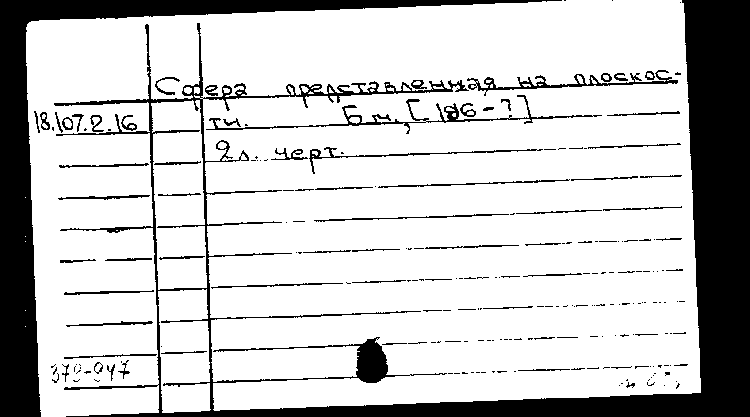 Сфера представленная на плоскос-
18.107.2.16 ти. Б.м., [186-?]
2л. черт.
379-947